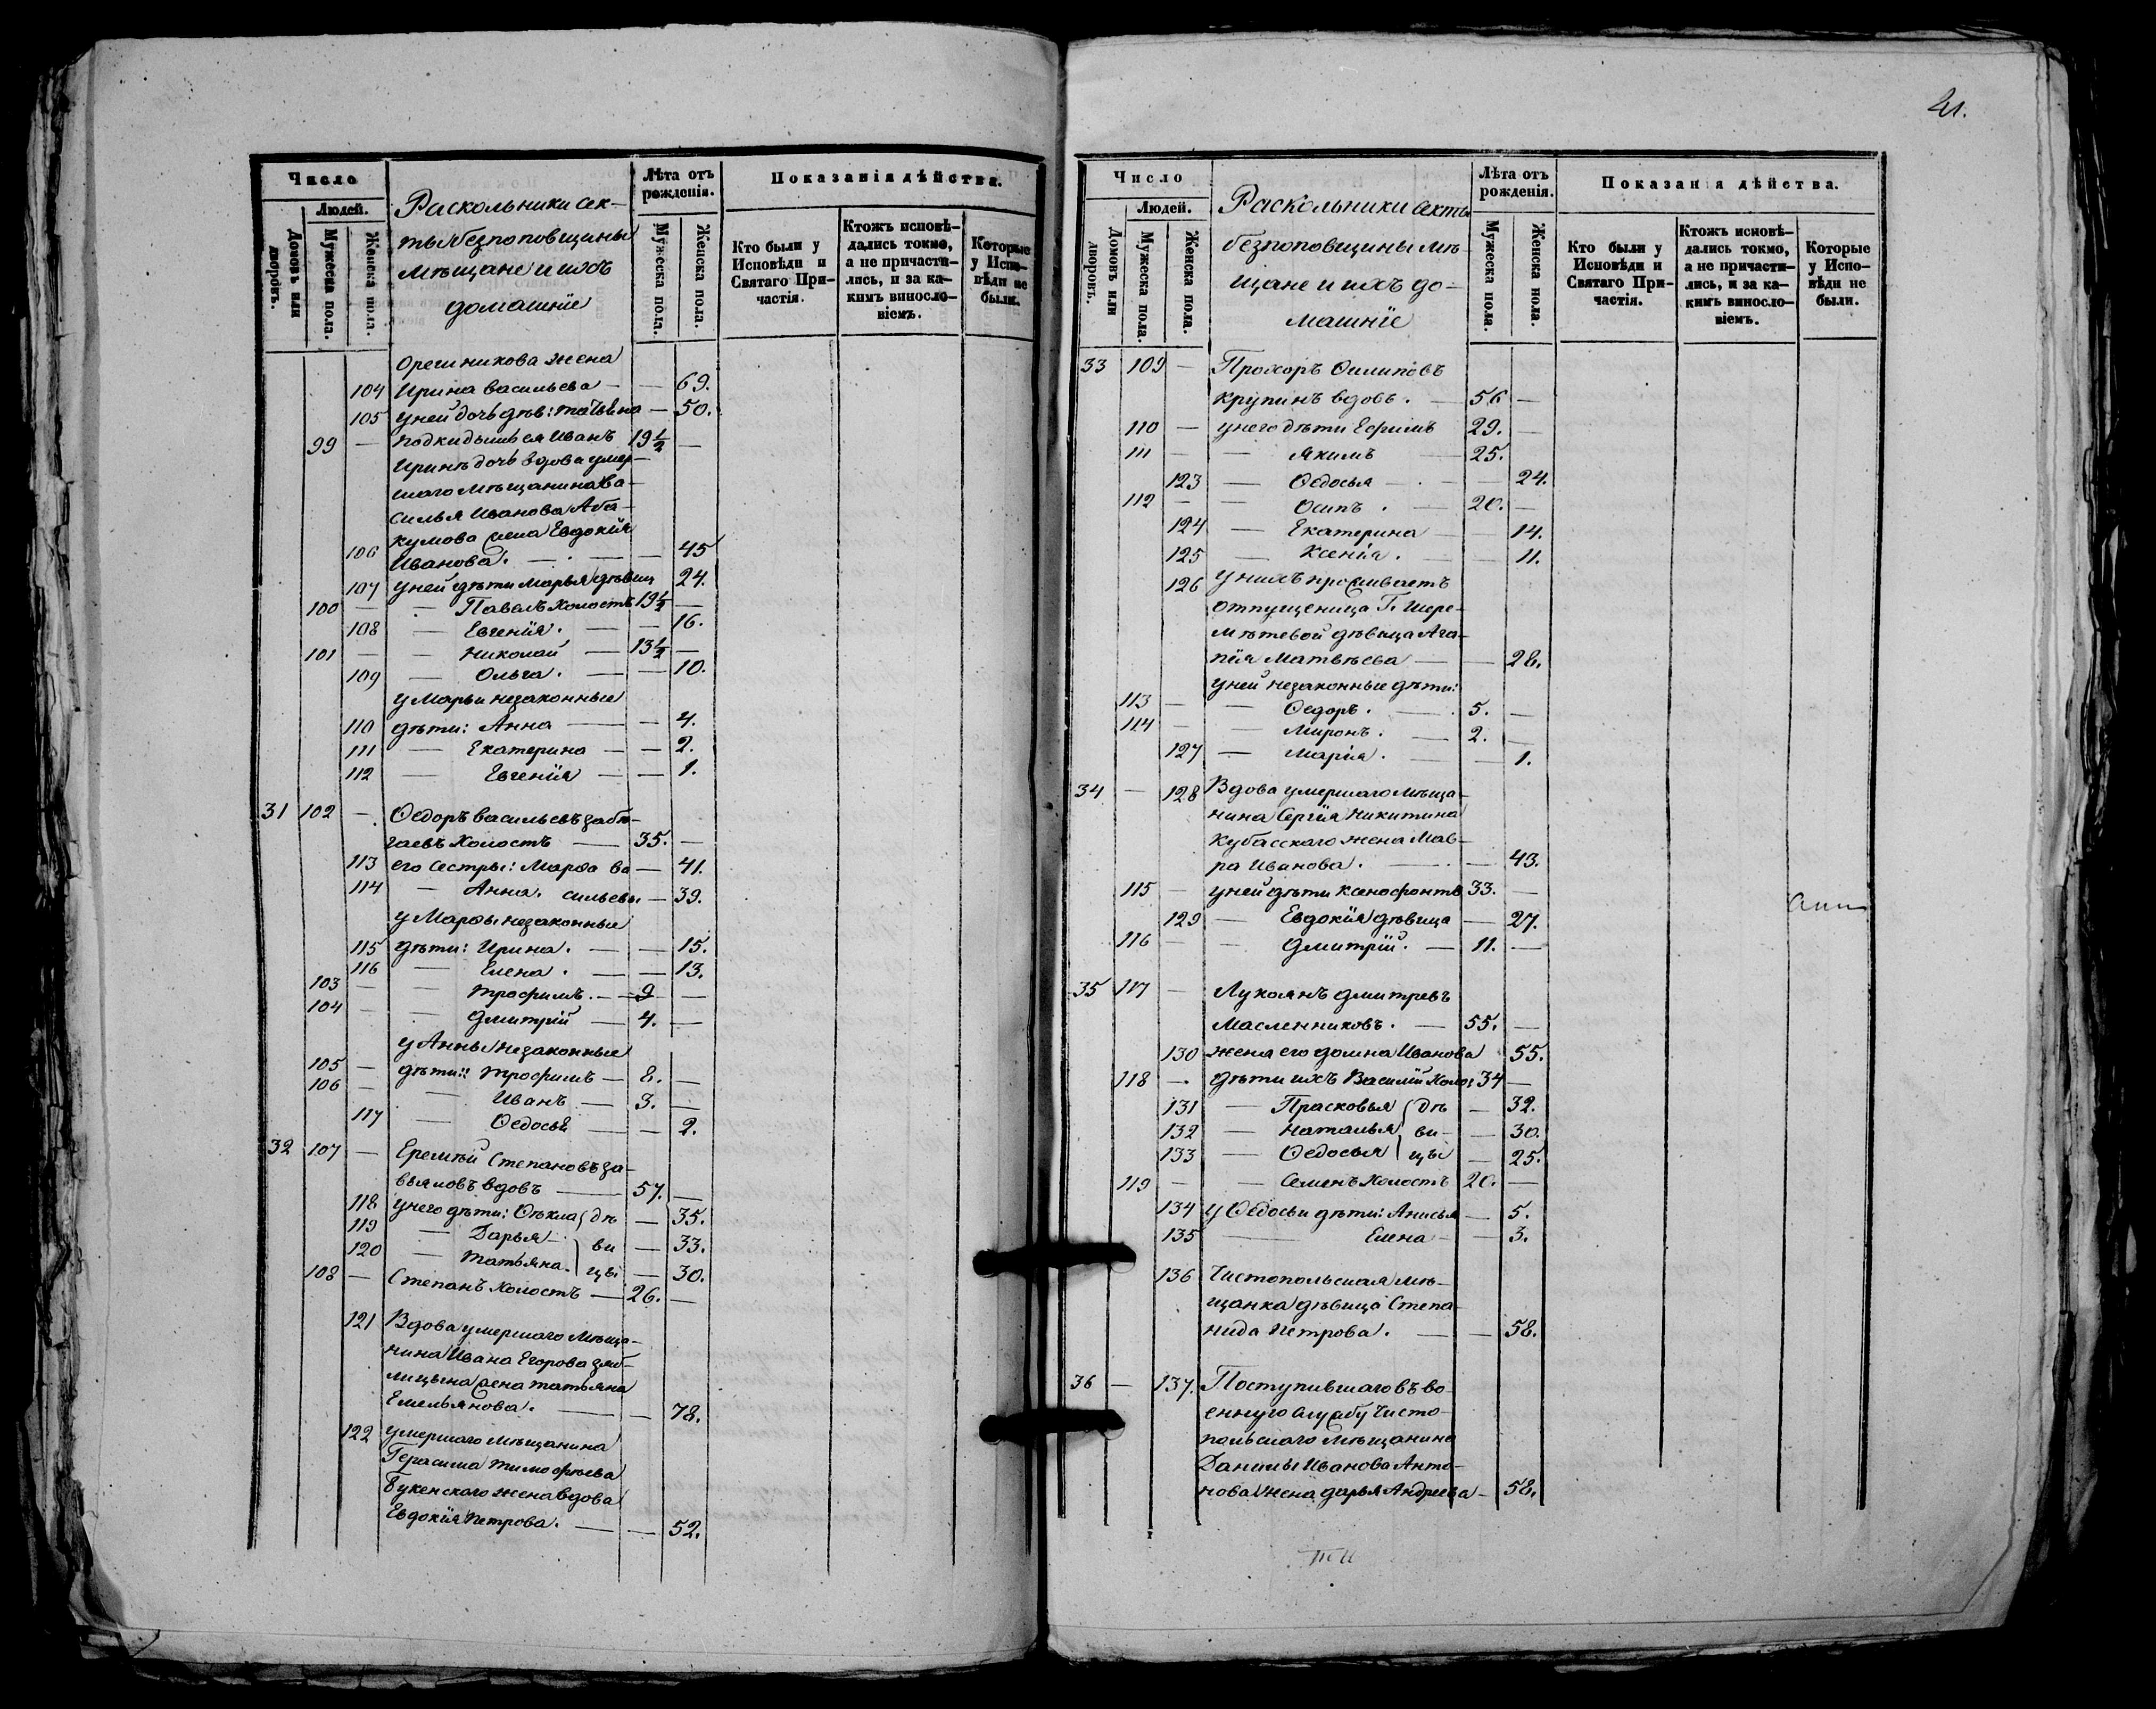 Число
Людей.
Домовъ или дворовъ.
Мужеска пола.
Женска пола.
Раскольники сек-
ты безпоповщины
мѣщане и ихъ
домашніе
Лѣта отъ рожденія.
Мужеска пола.
Женска пола.
Показанія дѣйства.
Кто были у Исповѣди и Святаго Причастія.
Ктожъ исповѣ-
дались токмо,
а не причасти-
лись, и за ка-
кимъ винosло-
віемъ.
Которые
у Испо-
вѣди не
были.
Орешникова жена
104 Ирина Васильева — — 69.
105 у ней дочь дѣв: Татьяна — 50.
99 — подкидышъ ея Иванъ 19½ —
Иринѣ дочь вдова умер-
шаго мѣщанина Ва-
силья Иванова Аба-
кумова жена Евдокія
106 Иванова. — — 45
107 у ней дѣти Марья дѣвиц 24.
100 — — Павелъ холостъ 19½ —
108 — Евгенія. — — 16.
101 — — Николай — 13½ —
109 — Ольга. — — 10.
у Марьи незаконные
110 дѣти: Анна — — 4.
111 — Екатерина — — 2.
112 — Евгенія — — 1.
31 102 — Ѳедоръ Васильевъ Забѣ-
гаевъ холостъ — 35. —
113 его сестры: Марѳа Ва — 41.
114 — Анна. сильевы — 39.
у Марѳы незаконные
115 дѣти: Ирина. — — 15.
116 — Елена. — — 13.
103 — — Трофимъ. — 9 —
104 — — Дмитрій — 4. —
у Анны незаконные
105 — дѣти: Трофимъ — 8. —
106 — — Иванъ — 3. —
117 — Ѳедосья — — 2.
32 107 — Еремѣй Степановъ За-
вьяловъ вдовъ — 57. —
118 у него дѣти: Ѳекла дѣ — 35.
119 — Дарья — ви — 33.
120 — Татьяна. цы — 30.
108 — Степанъ холостъ — 26. —
121 Вдова умершаго мѣща-
нина Ивана Егорова
жена Татьяна
Емельянова. — — 78.
122 умершаго мѣщанина
Герасима Тимофѣева
Букенского жена вдова
Евдокія Петрова. — — 52.
21.
Число
Людей.
Домовъ или дворовъ.
Мужеска пола.
Женска пола.
Раскольники секты
безпоповщины мѣ-
щане и ихъ до-
машніе
Лѣта отъ рожденія.
Мужеска пола.
Женска пола.
Показанія дѣйства.
Кто были у Исповѣди и Святаго Причастія.
Ктожъ исповѣ-
дались токмо,
а не причасти-
лись, и за ка-
кимъ винosло-
віемъ.
Которые
у Испо-
вѣди не
были.
33 109 — Прохоръ Филиповъ
Крупинъ вдовъ. — 56 —
110 — у него дѣти Ефимъ 29. —
111 — — Якимъ — 25.
123 — Ѳедосья — — 24.
112 — — Осипъ. — 20. —
124 — Екатерина — — 14.
125 — Ксенія. — — 11.
126 у нихъ проживаетъ
отпущеница Г. Шере-
метевой дѣвица Ага-
пія Матвѣева — — 28.
у ней незаконные дѣти:
113 — — Ѳедоръ. — 5. —
114 — — Миронъ. — 2. —
127 — Марія. — — 1.
34 — 128 Вдова умершаго мѣща-
нина Сергія Никитина
Кубасского жена Мав-
ра Иванова. — — 43.
115 — у ней дѣти Ксенофонтъ 33. —
129 — Евдокія дѣвица — 27.
116 — — Дмитрій. — 11. —
35 117 — Лукоянъ Дмитревъ
Масленниковъ. — 55. —
130 жена его Домна Иванова 55.
118 — дѣти ихъ Василій холо: 34 —
131 — Прасковья дѣ — 32.
132 — Наталья ви — 30.
133 — Ѳедосья цы — 25.
119 — — Семенъ холостъ 20. —
134 у Ѳедосьи дѣти: Анисья — 5.
135 — Елена — — 3.
136 Чистопольская мѣ-
щанка дѣвица Степа-
нида Петрова. — — 58.
36 — 137. Поступившаго въ во-
енную службу Чисто-
польскаго мѣщанина
Данилы Иванова Анто-
нова жена Дарья Андреева — 58.